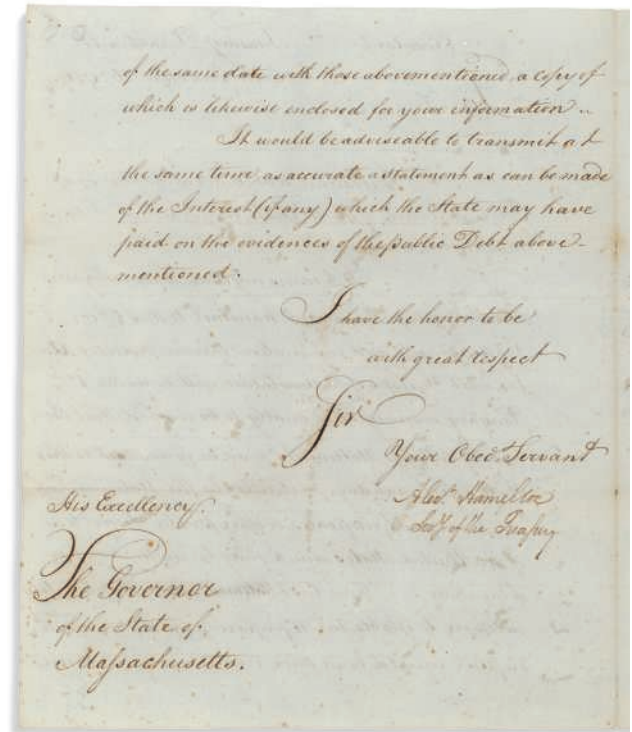 of the same date with those abovementioned, a copy of
which is likewise enclosed for your information..
It would be adviseable to transmit at
the same time, as accurate a statement as can be made
of the Interest (if any) which the State may have
paid on the evidences of the public Debt above-
mentioned.
I have the honor to be
with great respect
Sir
Your Obed.t Servant
Alex Hamilton
Secy of the Treasury
His Excellency.
The Governor
of the State of
Massachusetts.